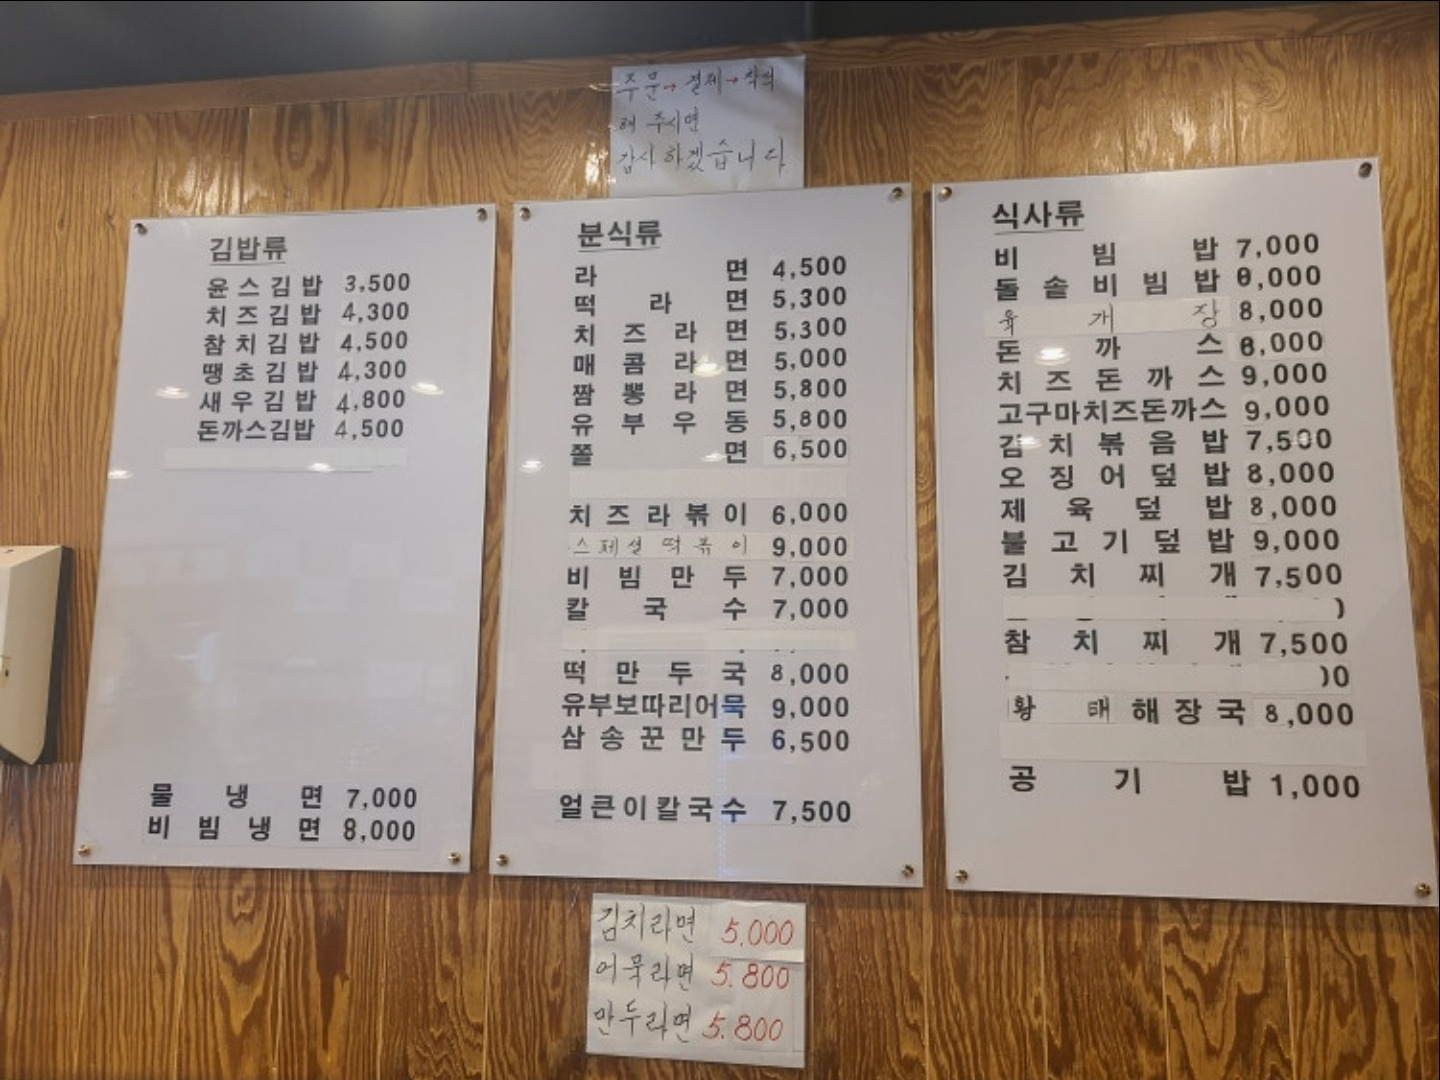 주문→결제→착석
해 주시면
감사하겠습니다
김밥류
윤스김밥 3,500
치즈김밥 4,300
참치김밥 4,500
땡초김밥 4,300
새우김밥 4,800
돈까스김밥 4,500
물냉면 7,000
비빔냉면 8,000
분식류
라면 4,500
떡라면 5,300
치즈라면 5,300
매콤라면 5,000
짬뽕라면 5,800
유부우동 5,800
쫄면 6,500
치즈라볶이 6,000
스페셜떡볶이 9,000
비빔만두 7,000
칼국수 7,000
떡만두국 8,000
유부보따리어묵 9,000
삼송꾼만두 6,500
얼큰이칼국수 7,500
식사류
비빔밥 7,000
돌솥비빔밥 8,000
육개장 8,000
돈까스 8,000
치즈돈까스 9,000
고구마치즈돈까스 9,000
김치볶음밥 7,500
오징어덮밥 8,000
제육덮밥 8,000
불고기덮밥 9,000
김치찌개 7,500
참치찌개 7,500
황태해장국 8,000
공기밥 1,000
김치라면 5.000
어묵라면 5.800
만두라면 5.800